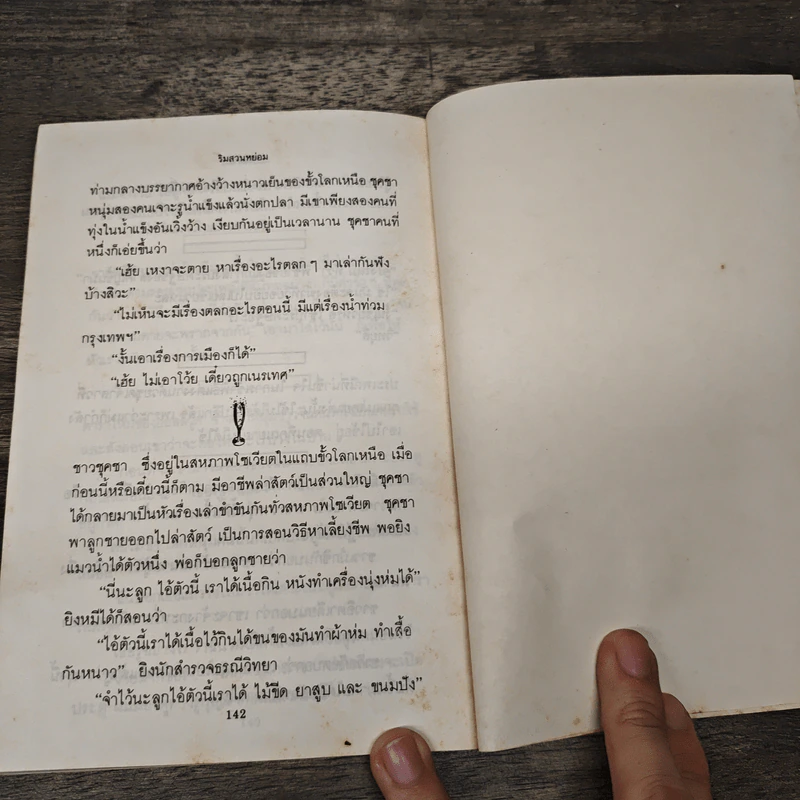 ริมสวนหย่อม
ท่ามกลางบรรยากาศอ้างว้างหนาวเย็นของขั้วโลกเหนือ ชุคชา
หนุ่มสองคนเจาะรูน้ำแข็งแล้วนั่งตกปลา มีเขาเพียงสองคนที่
ทุ่งในน้ำแข็งอันเวิ้งว้าง เงียบกันอยู่เป็นเวลานาน ชุคชาคนที่
หนึ่งก็เอ่ยขึ้นว่า
“เฮ้ย เหงาจะตาย หาเรื่องอะไรตลก ๆ มาเล่ากันฟัง
บ้างสิวะ”
“ไม่เห็นจะมีเรื่องตลกอะไรตอนนี้ มีแต่เรื่องน้ำท่วม
กรุงเทพฯ”
“งั้นเอาเรื่องการเมืองก็ได้”
“เฮ้ย ไม่เอาโว้ย เดี๋ยวถูกเนรเทศ”
ชาวชุคชา ซึ่งอยู่ในสหภาพโซเวียตในแถบขั้วโลกเหนือ เมื่อ
ก่อนนี้หรือเดี๋ยวนี้ก็ตาม มีอาชีพล่าสัตว์เป็นส่วนใหญ่ ชุคชา
ได้กลายมาเป็นหัวเรื่องเล่าขำขันกันทั่วสหภาพโซเวียต ชุคชา
พาลูกชายออกไปล่าสัตว์ เป็นการสอนวิธีหาเลี้ยงชีพ พอยิง
แมวน้ำได้ตัวหนึ่ง พ่อก็บอกลูกชายว่า
“นี่นะลูก ไอ้ตัวนี้ เราได้เนื้อกิน หนังทำเครื่องนุ่งห่มได้”
ยิงหมีได้ก็สอนว่า
“ไอ้ตัวนี้เราได้เนื้อไว้กินได้ขนของมันทำผ้าห่ม ทำเสื้อ
กันหนาว” ยิงนักสำรวจธรณีวิทยา
“จำไว้นะลูกไอ้ตัวนี้เราได้ ไม้ขีด ยาสูบ และ ขนมปัง”
142